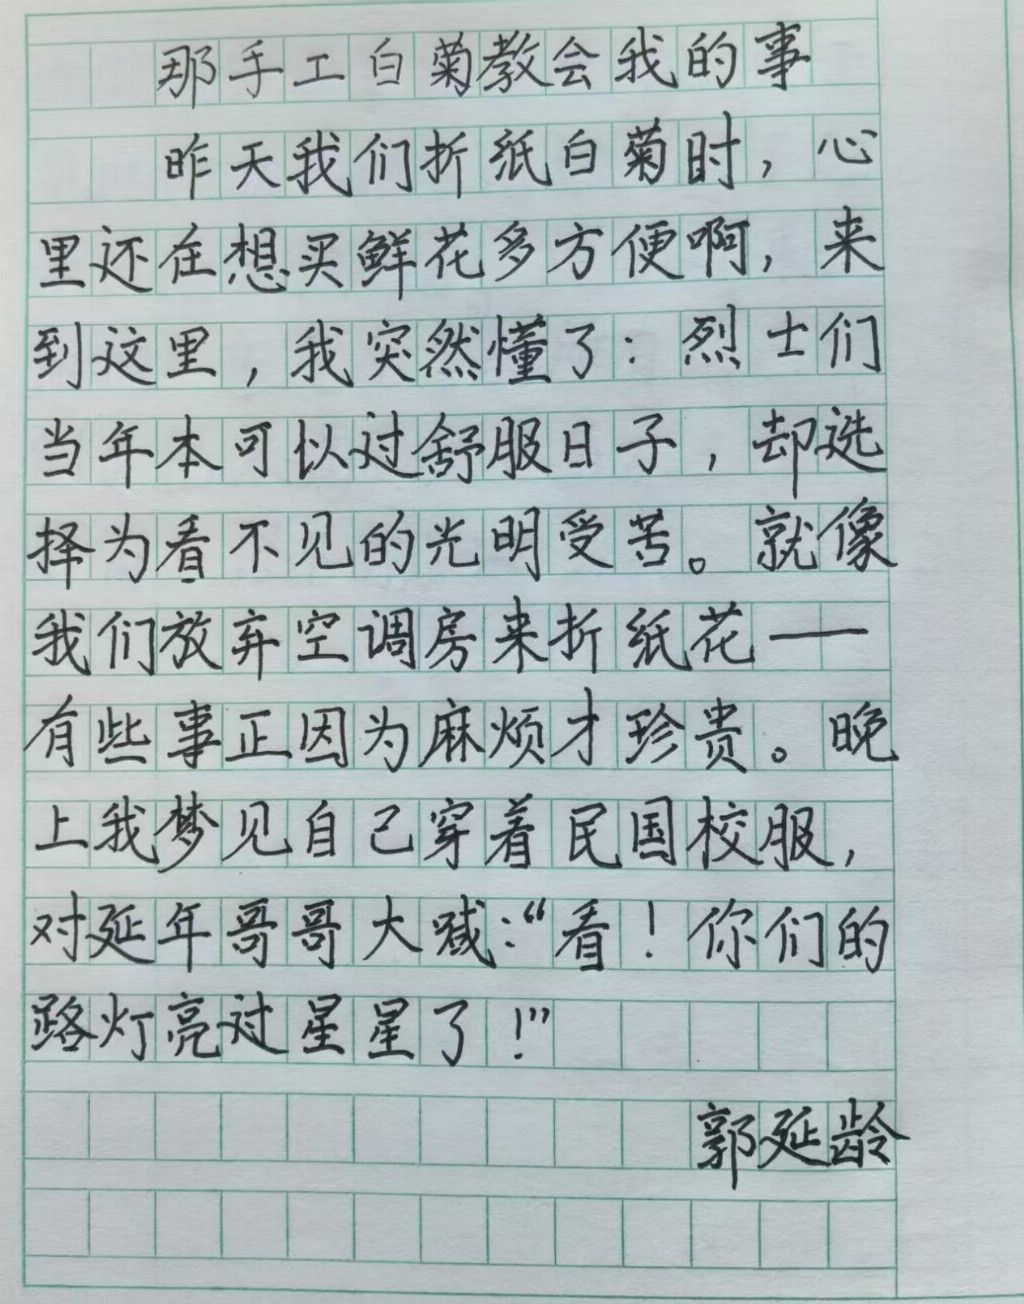 那手工白菊教会我的事
昨天我们折纸白菊时，心
里还在想买鲜花多方便啊，来
到这里，我突然懂了：烈士们
当年本可以过舒服日子，却选
择为看不见的光明受苦。就像
我们放弃空调房来折纸花——
有些事正因为麻烦才珍贵。晚
上我梦见自己穿着民国校服，
对延年哥哥大喊：“看！你们的
路灯亮过星星了！”
郭延龄